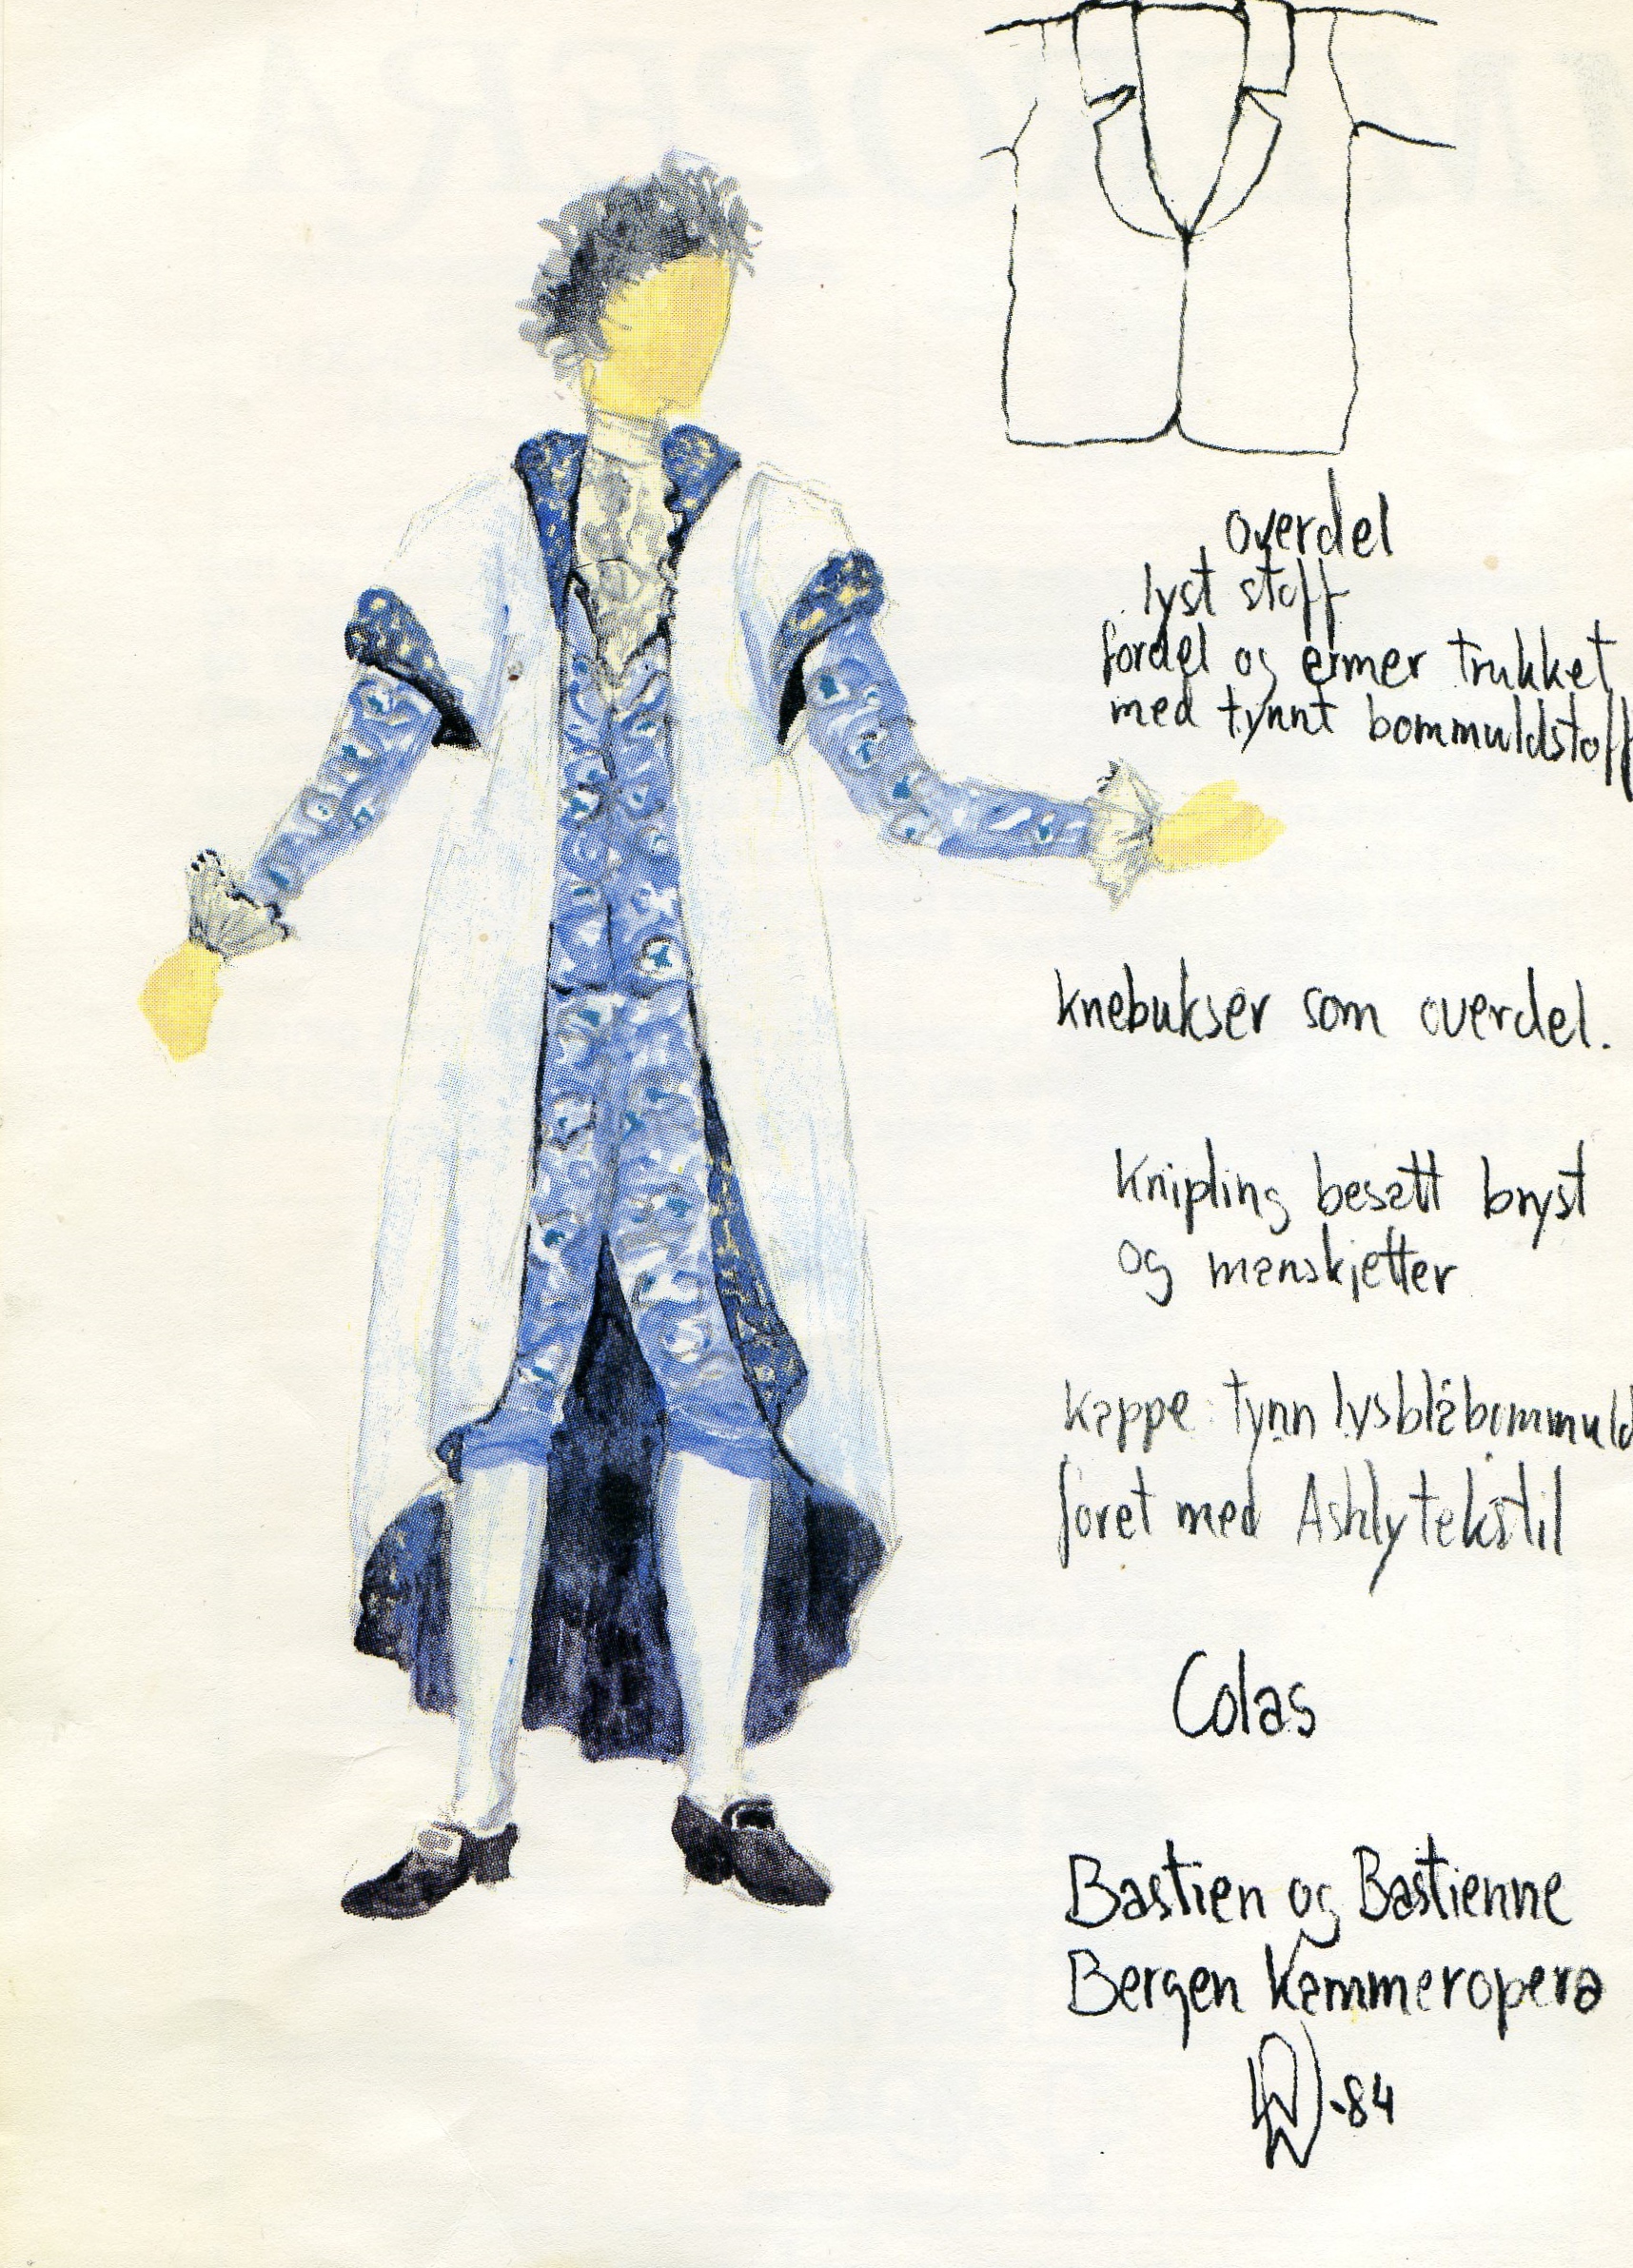 overdel
lyst stoff
fordel og ermer trukket
med tynnt bommuldstoff
knebukser som overdel.
Knipling besatt bryst
og manskjetter
Kappe: tynn lysblå bommuld
foret med Ashly tekstil
Colas
Bastien og Bastienne
Bergen Kammeropera
-84